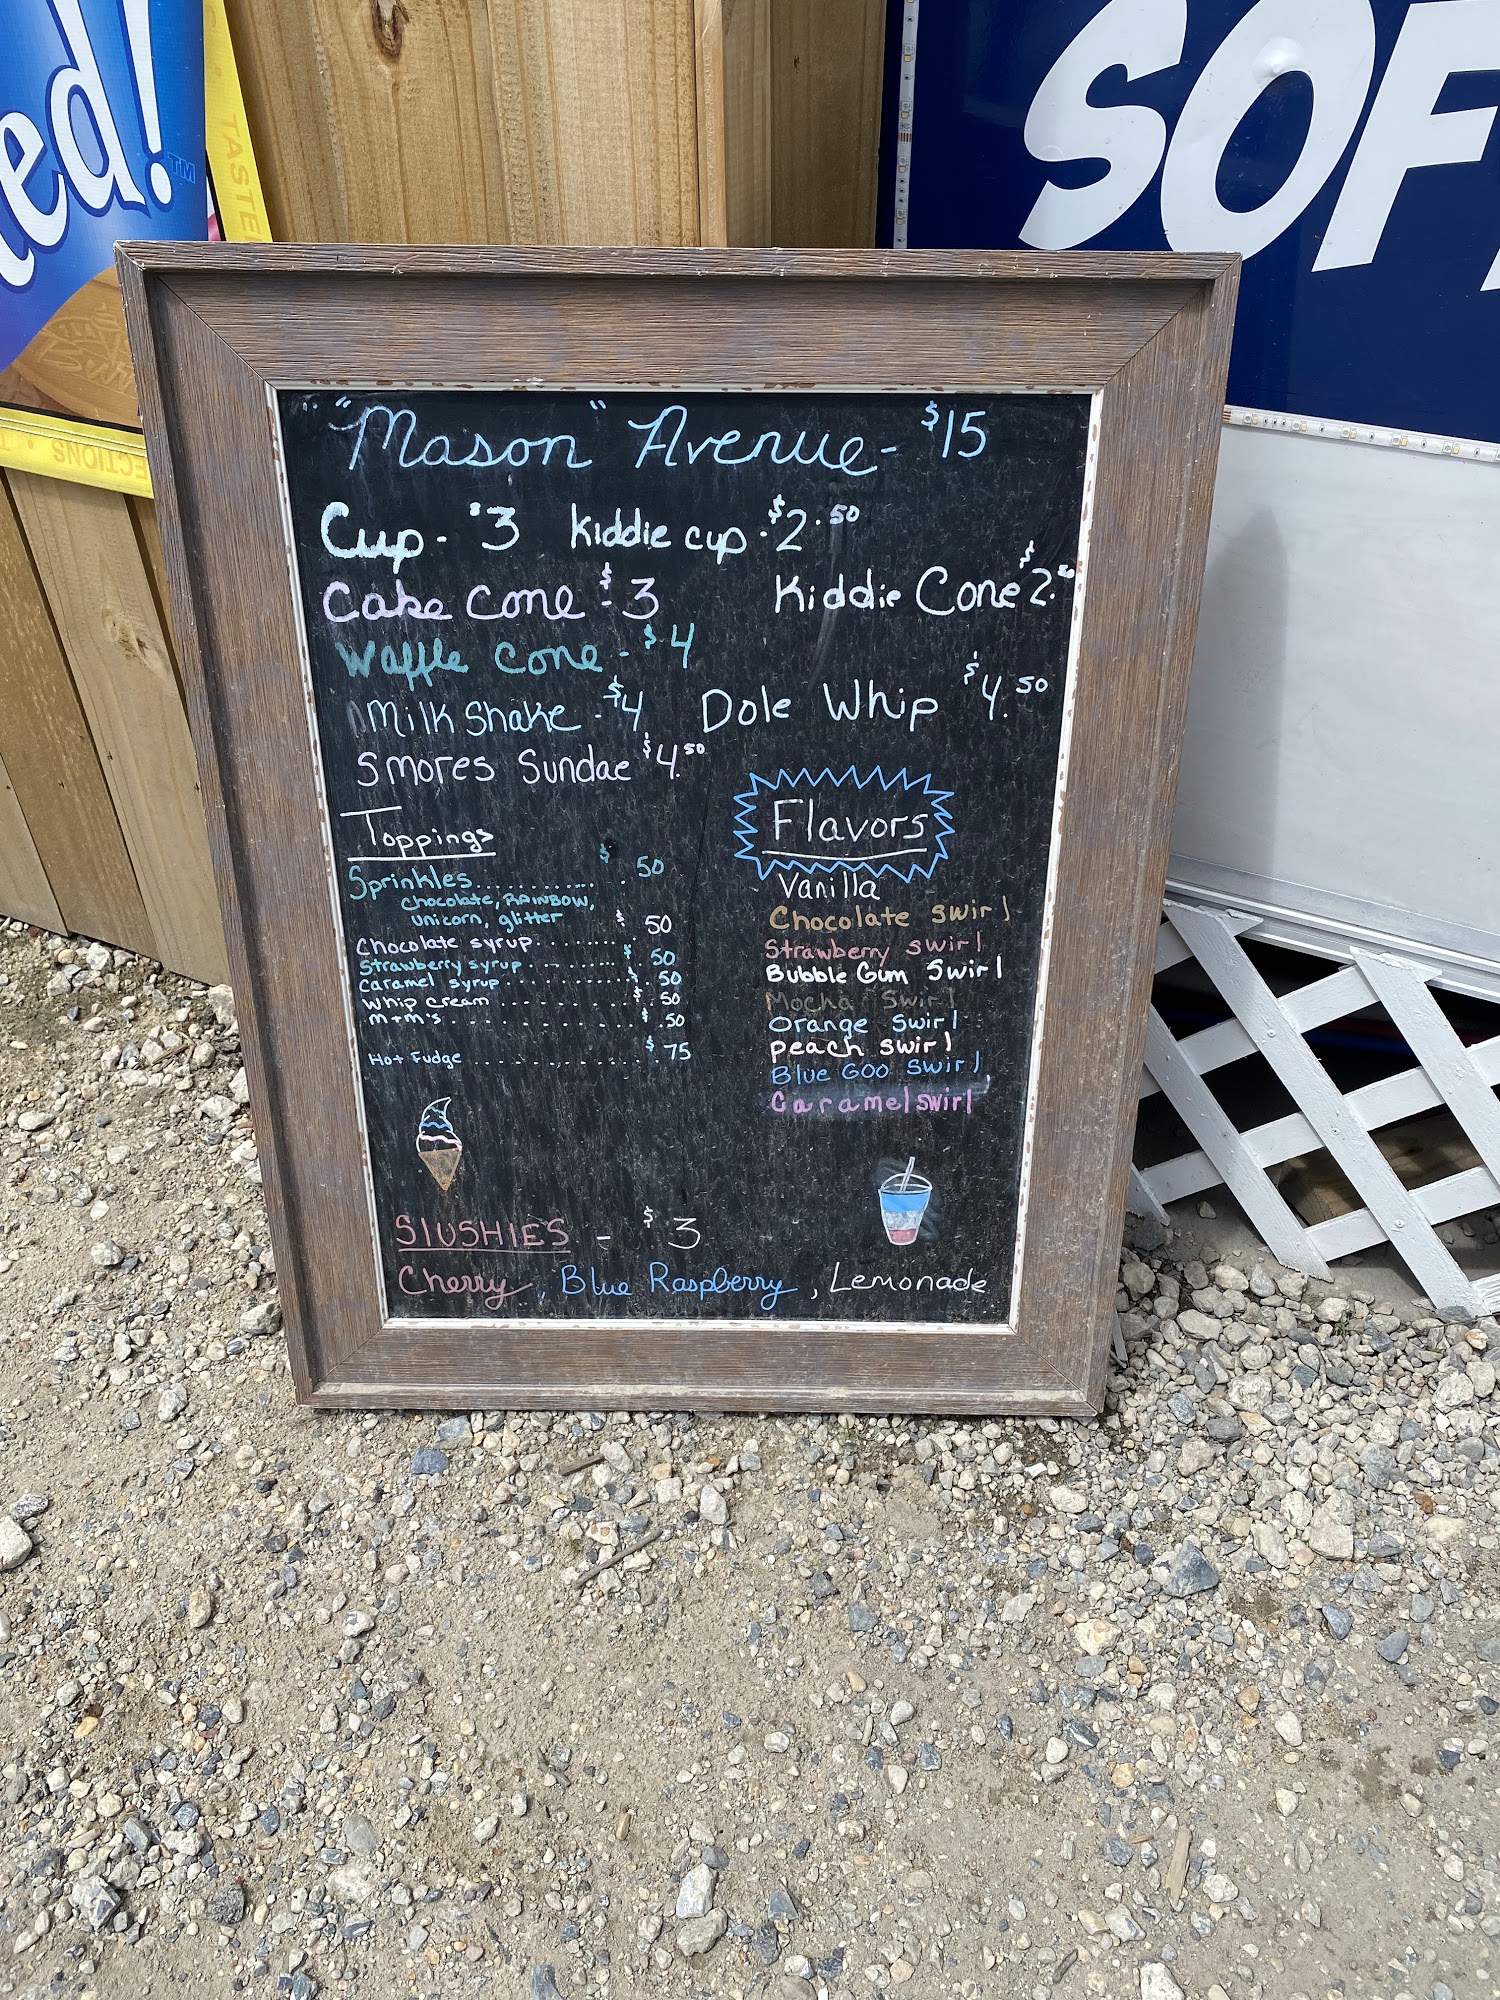 ed!™
TASTE
SOF
CTIONS
"Mason" Avenue - $15
Cup - $3 Kiddie cup - $2.50
Cake cone - $3 Kiddie Cone $2.50
Waffle cone - $4
Milk Shake - $4 Dole Whip $4.50
Smores Sundae $4.50
Toppings
Sprinkles............ $.50
Chocolate, RAINBOW,
Unicorn, glitter
Chocolate syrup......... $.50
Strawberry syrup......... $.50
Caramel syrup............ $.50
Whip cream............ $.50
M+M's............ $.50
Hot Fudge............ $.75
Flavors
Vanilla
Chocolate swirl
Strawberry swirl
Bubble Gum Swirl
Mocha Swirl
Orange swirl
peach swirl
Blue Goo swirl
Caramel swirl
SlUSHIES - $3
Cherry, Blue Raspberry, Lemonade